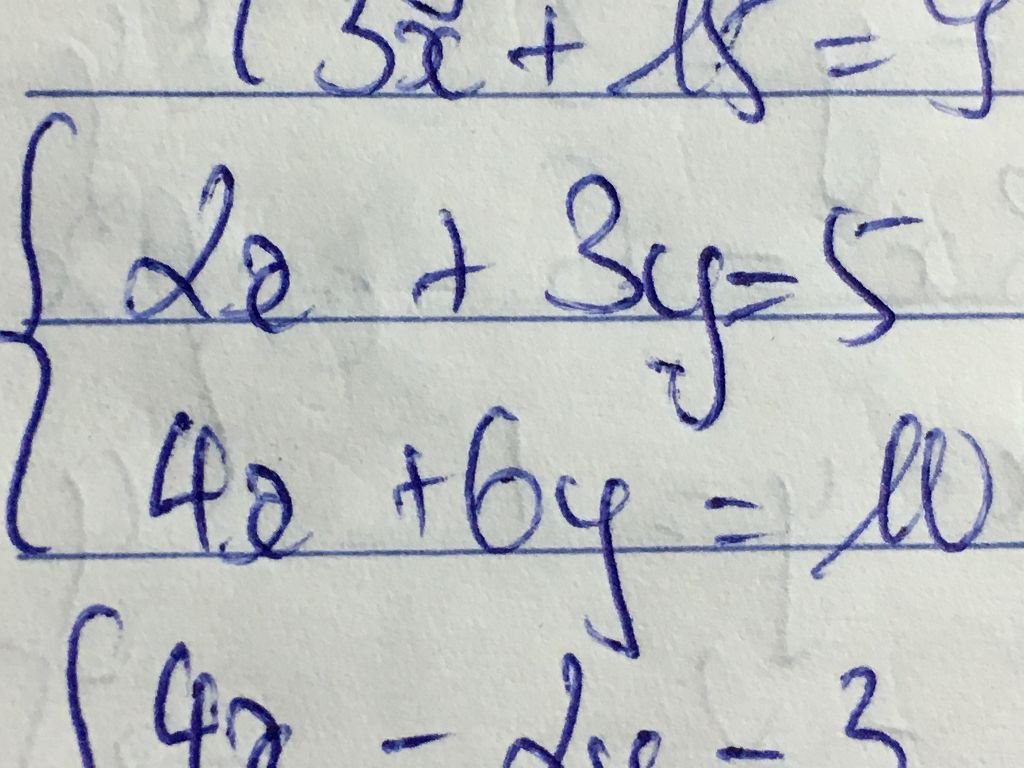 3x + 15 = 9
2x + 3y = 5
4x + 6y = 10
4x - 2y = 3